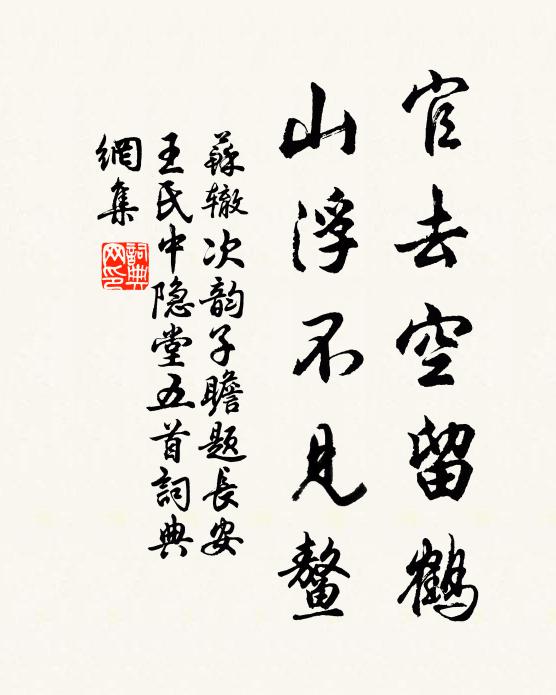 官去空留鶴
山浮不見鳌
蘇辙次韵子瞻題長安
王氏中隐堂五首詞典
網集
詞典網印